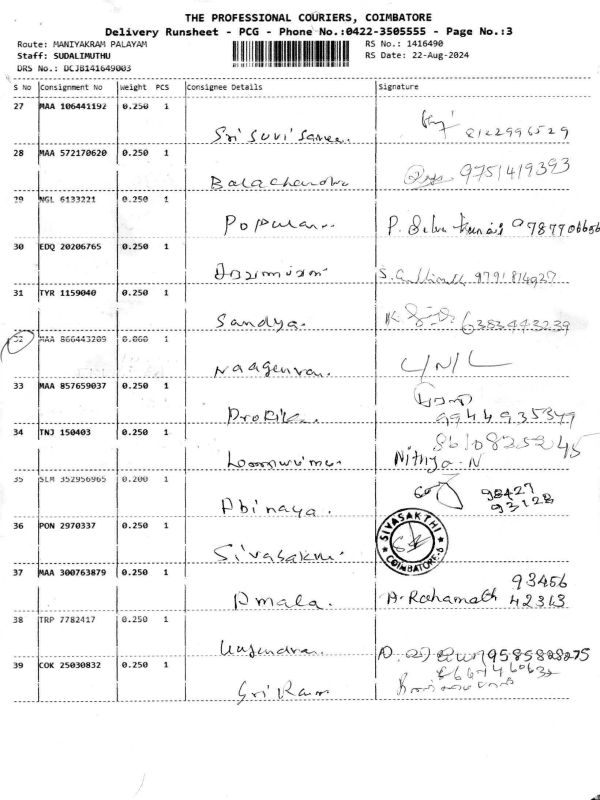 THE PROFESSIONAL COURIERS, COIMBATORE
Delivery Runsheet - PCG - Phone No.:0422-3505555 - Page No.:3
Route: MANIYAKRAM PALAYAM RS No.: 1416490
Staff: SUDALIMUTHU RS Date: 22-Aug-2024
DRS No.: DCJB141649003
S No Consignment No Weight PCS Consignee Details Signature
27 MAA 106441192 0.250 1
8122996529
28 MAA 572170620 0.250 1
Balachandra 9751419393
29 NGL 6133221 0.250 1
Popular P. Babu Kumar
30 EDQ 20206765 0.250 1
9791814927
31 TYR 1159040 0.250 1
Sandya. 6383443239
32 MAA 866443209 0.060 1
33 MAA 857659037 0.250 1
9944935379
34 TNJ 150403 0.250 1
8610825245
Nithya.N
35 SLM 352956965 0.200 1
98427
93128
Abinaya.
36 PON 2970337 0.250 1
SIVASAKTHI
COIMBATORE-6
Sivasakthi
37 MAA 300763879 0.250 1
93456
Amala. A. Rahamath 42313
38 TRP 7782417 0.250 1
Gajendra. 9585828275
39 COK 25030832 0.250 1
Sri Ram